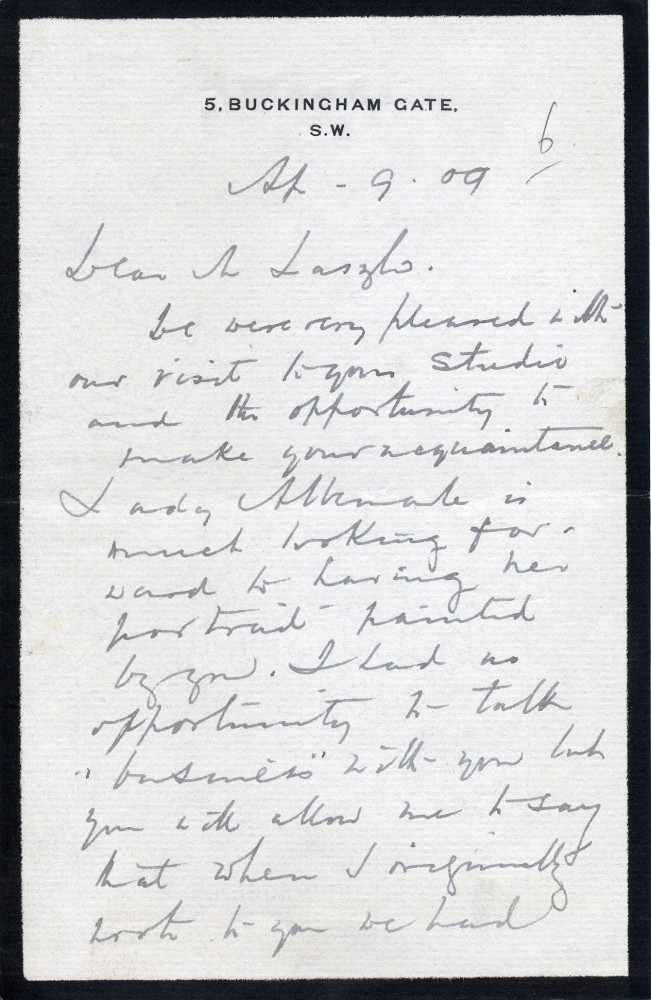 5, BUCKINGHAM GATE,
S.W.
6
Ap - 9. 09
Dear Mr Laszlo.
We were very pleased with
our visit to your studio
and the opportunity to
make your acquaintance.
Lady Albemarle is
much looking for-
ward to having her
portrait painted
by you. I had no
opportunity to talk
"business" with you but
you will allow me to say
that when I originally
wrote to you we had